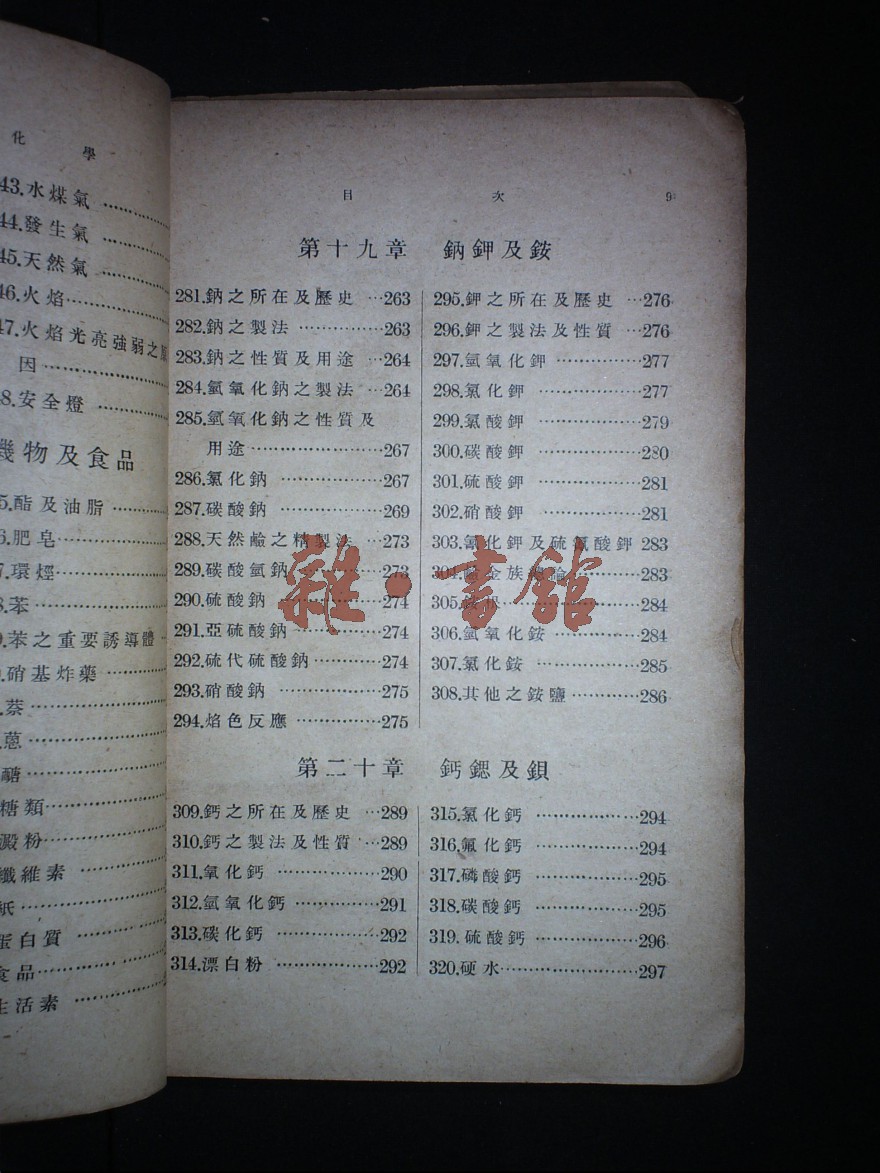 化學
43.水煤氣
44.發生氣
45.天然氣
46.火焰
47.火焰光亮強弱之原
因
8.安全燈
物及食品
5.酯及油脂
6.肥皂
7.環烴
8.苯
9.苯之重要誘導體
硝基炸藥
萘
蒽
醣
糖類
澱粉
纖維素
紙
蛋白質
食品
生活素
目次 9
第十九章 鈉鉀及銨
281.鈉之所在及歷史…263
282.鈉之製法……………263
283.鈉之性質及用途…264
284.氫氧化鈉之製法…264
285.氫氧化鈉之性質及
用途……………………267
286.氯化鈉………………267
287.碳酸鈉………………269
288.天然鹼之精製法…273
289.碳酸氫鈉……………273
290.硫酸鈉………………274
291.亞硫酸鈉……………274
292.硫代硫酸鈉…………274
293.硝酸鈉………………275
294.焰色反應……………275
295.鉀之所在及歷史…276
296.鉀之製法及性質…276
297.氫氧化鉀……………277
298.氯化鉀………………277
299.氯酸鉀………………279
300.碳酸鉀………………280
301.硫酸鉀………………281
302.硝酸鉀………………281
303.氰化鉀及硫氰酸鉀 283
304.金族總論……………283
305.……………284
306.氫氧化銨……………284
307.氯化銨………………285
308.其他之銨鹽…………286
第二十章 鈣鍶及鋇
309.鈣之所在及歷史…289
310.鈣之製法及性質…289
311.氧化鈣………………290
312.氫氧化鈣……………291
313.碳化鈣………………292
314.漂白粉………………292
315.氯化鈣………………294
316.氟化鈣………………294
317.磷酸鈣………………295
318.碳酸鈣………………295
319.硫酸鈣………………296
320.硬水…………………297
雜·書館